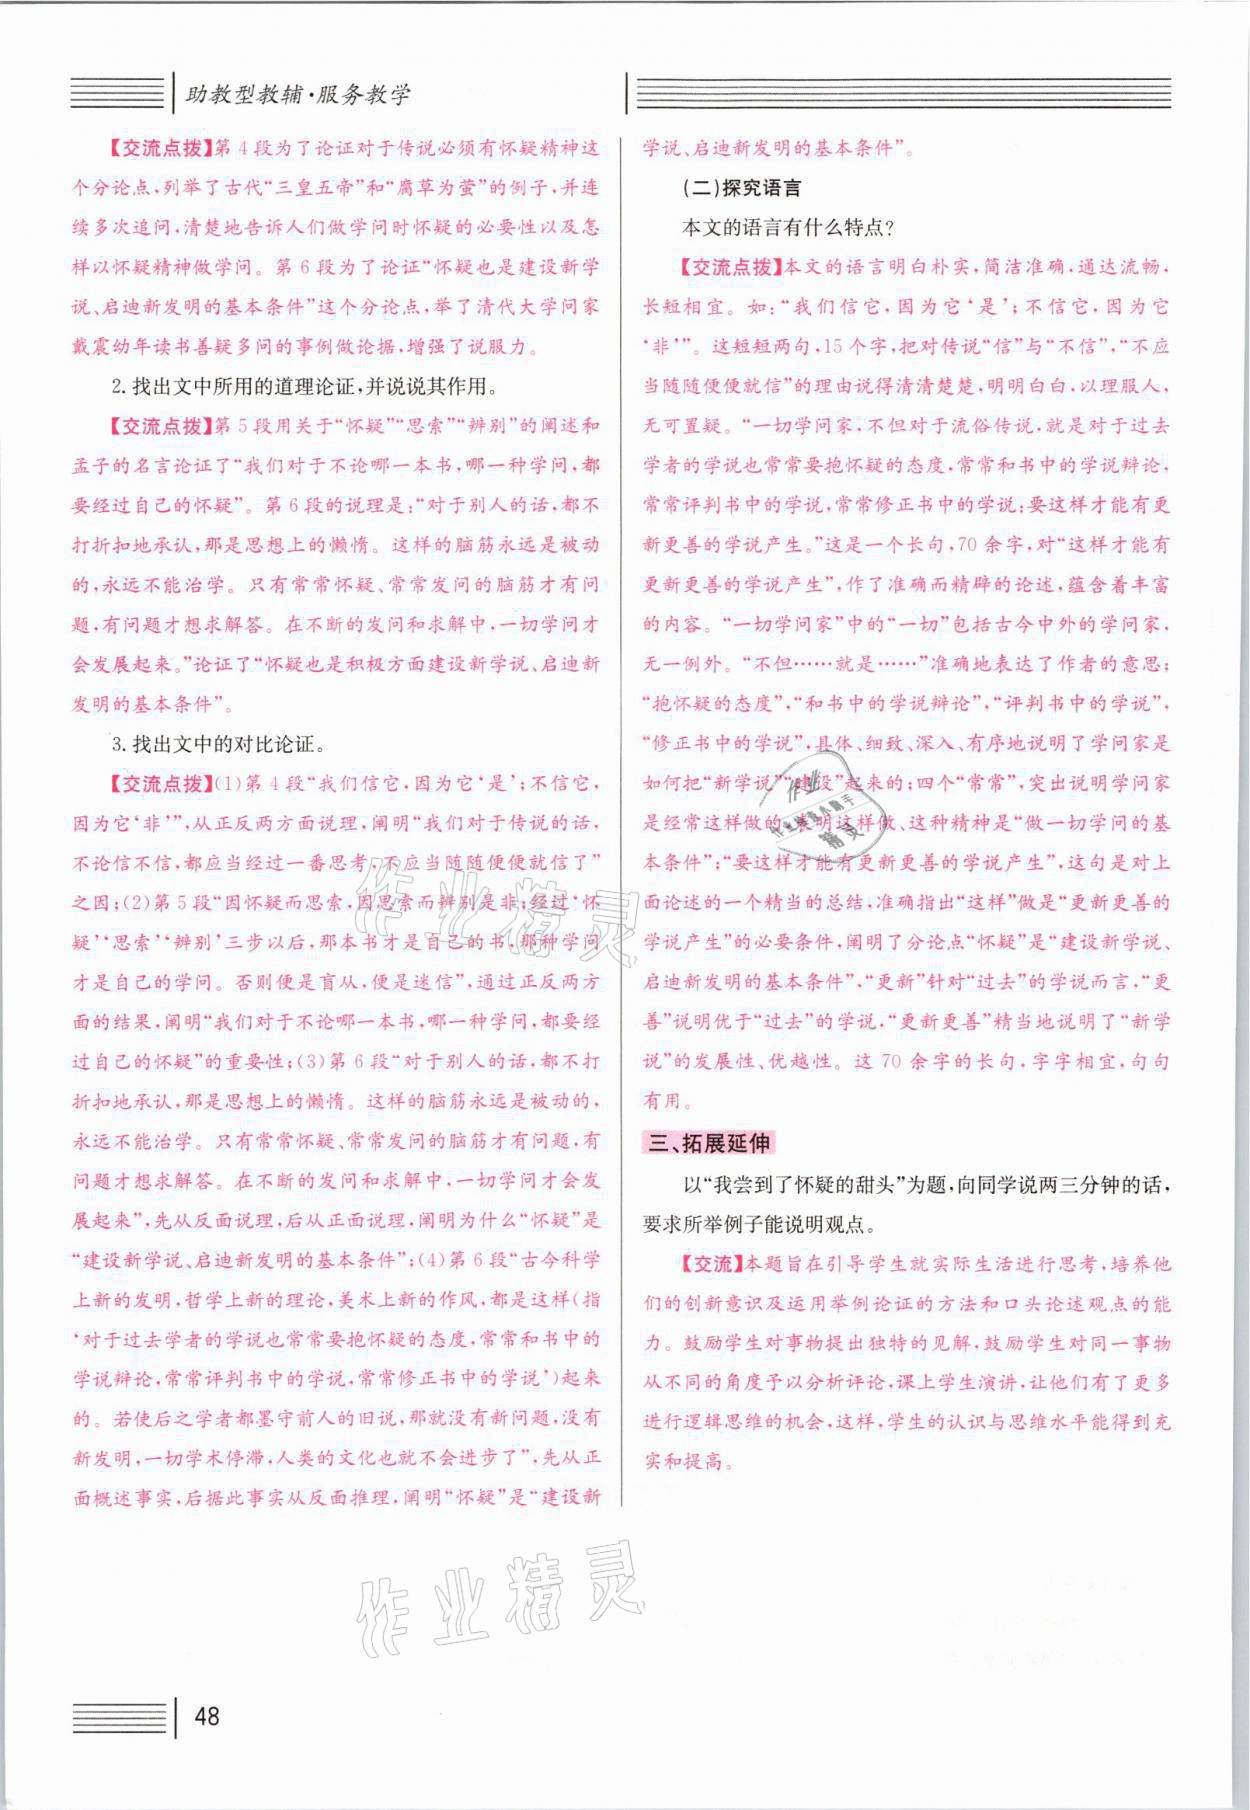 助教型教辅·服务教学
【交流点拨】第4段为了论证对于传说必须有怀疑精神这
个分论点,列举了古代“三皇五帝”和“腐草为萤”的例子,并连
续多次追问,清楚地告诉人们做学问时怀疑的必要性以及怎
样以怀疑精神做学问。第6段为了论证“怀疑也是建设新学
说、启迪新发明的基本条件”这个分论点,举了清代大学问家
戴震幼年读书善疑多问的事例做论据,增强了说服力。
2. 找出文中所用的道理论证,并说说其作用。
【交流点拨】第5段用关于“怀疑”“思索”“辨别”的阐述和
孟子的名言论证了“我们对于不论哪一本书,哪一种学问,都
要经过自己的怀疑”。第6段的说理是:“对于别人的话,都不
打折扣地承认,那是思想上的懒惰。这样的脑筋永远是被动
的,永远不能治学。只有常常怀疑、常常发问的脑筋才有问
题,有问题才想求解答。在不断的发问和求解中,一切学问才
会发展起来。”论证了“怀疑也是积极方面建设新学说、启迪新
发明的基本条件”。
3. 找出文中的对比论证。
【交流点拨】(1)第4段“我们信它,因为它‘是’;不信它,
因为它‘非’”,从正反两方面说理,阐明“我们对于传说的话,
不论信不信,都应当经过一番思考,不应当随随便便就信了”
之因;(2)第5段“因怀疑而思索,因思索而辨别是非;经过‘怀
疑’‘思索’‘辨别’三步以后,那本书才是自己的书,那种学问
才是自己的学问。否则便是盲从,便是迷信”,通过正反两方
面的结果,阐明“我们对于不论哪一本书,哪一种学问,都要经
过自己的怀疑”的重要性;(3)第6段“对于别人的话,都不打
折扣地承认,那是思想上的懒惰。这样的脑筋永远是被动的,
永远不能治学。只有常常怀疑、常常发问的脑筋才有问题,有
问题才想求解答。在不断的发问和求解中,一切学问才会发
展起来”,先从反面说理,后从正面说理,阐明为什么“怀疑”是
“建设新学说、启迪新发明的基本条件”;(4)第6段“古今科学
上新的发明,哲学上新的理论,美术上新的作风,都是这样(指
‘对于过去学者的学说也常常要抱怀疑的态度,常常和书中的
学说辩论,常常评判书中的学说,常常修正书中的学说’)起来
的。若使后之学者都墨守前人的旧说,那就没有新问题,没有
新发明,一切学术停滞,人类的文化也就不会进步了”,先从正
面概述事实,后据此事实从反面推理,阐明“怀疑”是“建设新
学说、启迪新发明的基本条件”。
(二)探究语言
本文的语言有什么特点?
【交流点拨】本文的语言明白朴实,简洁准确,通达流畅,
长短相宜。如:“我们信它,因为它‘是’;不信它,因为它
‘非’”。这短短两句,15个字,把对传说“信”与“不信”,“不应
当随随便便就信”的理由说得清清楚楚,明明白白,以理服人,
无可置疑。“一切学问家,不但对于流俗传说,就是对于过去
学者的学说也常常要抱怀疑的态度,常常和书中的学说辩论,
常常评判书中的学说,常常修正书中的学说;要这样才能有更
新更善的学说产生。”这是一个长句,70余字,对“这样才能有
更新更善的学说产生”,作了准确而精辟的论述,蕴含着丰富
的内容。“一切学问家”中的“一切”包括古今中外的学问家,
无一例外。“不但……就是……”准确地表达了作者的意思;
“抱怀疑的态度”,“和书中的学说辩论”,“评判书中的学说”,
“修正书中的学说”,具体、细致、深入、有序地说明了学问家是
如何把“新学说”“建设”起来的;四个“常常”,突出说明学问家
是经常这样做的,表明这样做、这种精神是“做一切学问的基
本条件”;“要这样才能有更新更善的学说产生”,这句是对上
面论述的一个精当的总结,准确指出“这样”做是“更新更善的
学说产生”的必要条件,阐明了分论点“怀疑”是“建设新学说、
启迪新发明的基本条件”,“更新”针对“过去”的学说而言,“更
善”说明优于“过去”的学说,“更新更善”精当地说明了“新学
说”的发展性、优越性。这70余字的长句,字字相宜,句句
有用。
三、拓展延伸
以“我尝到了怀疑的甜头”为题,向同学说两三分钟的话,
要求所举例子能说明观点。
【交流】本题旨在引导学生就实际生活进行思考,培养他
们的创新意识及运用举例论证的方法和口头论述观点的能
力。鼓励学生对事物提出独特的见解,鼓励学生对同一事物
从不同的角度予以分析评论,课上学生演讲,让他们有了更多
进行逻辑思维的机会,这样,学生的认识与思维水平能得到充
实和提高。
作业精灵
作业精灵
48